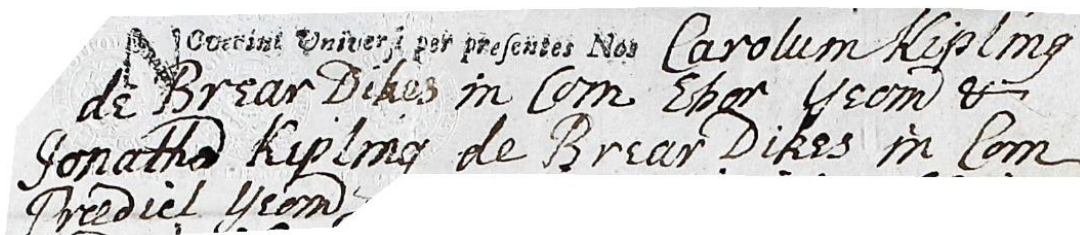 Noverint Universi per presentes Nos Carolum Kipling
de Brear Dikes in Com Ebor Yeom &
Jonathā Kipling de Brear Dikes in Com
Prædict Yeom